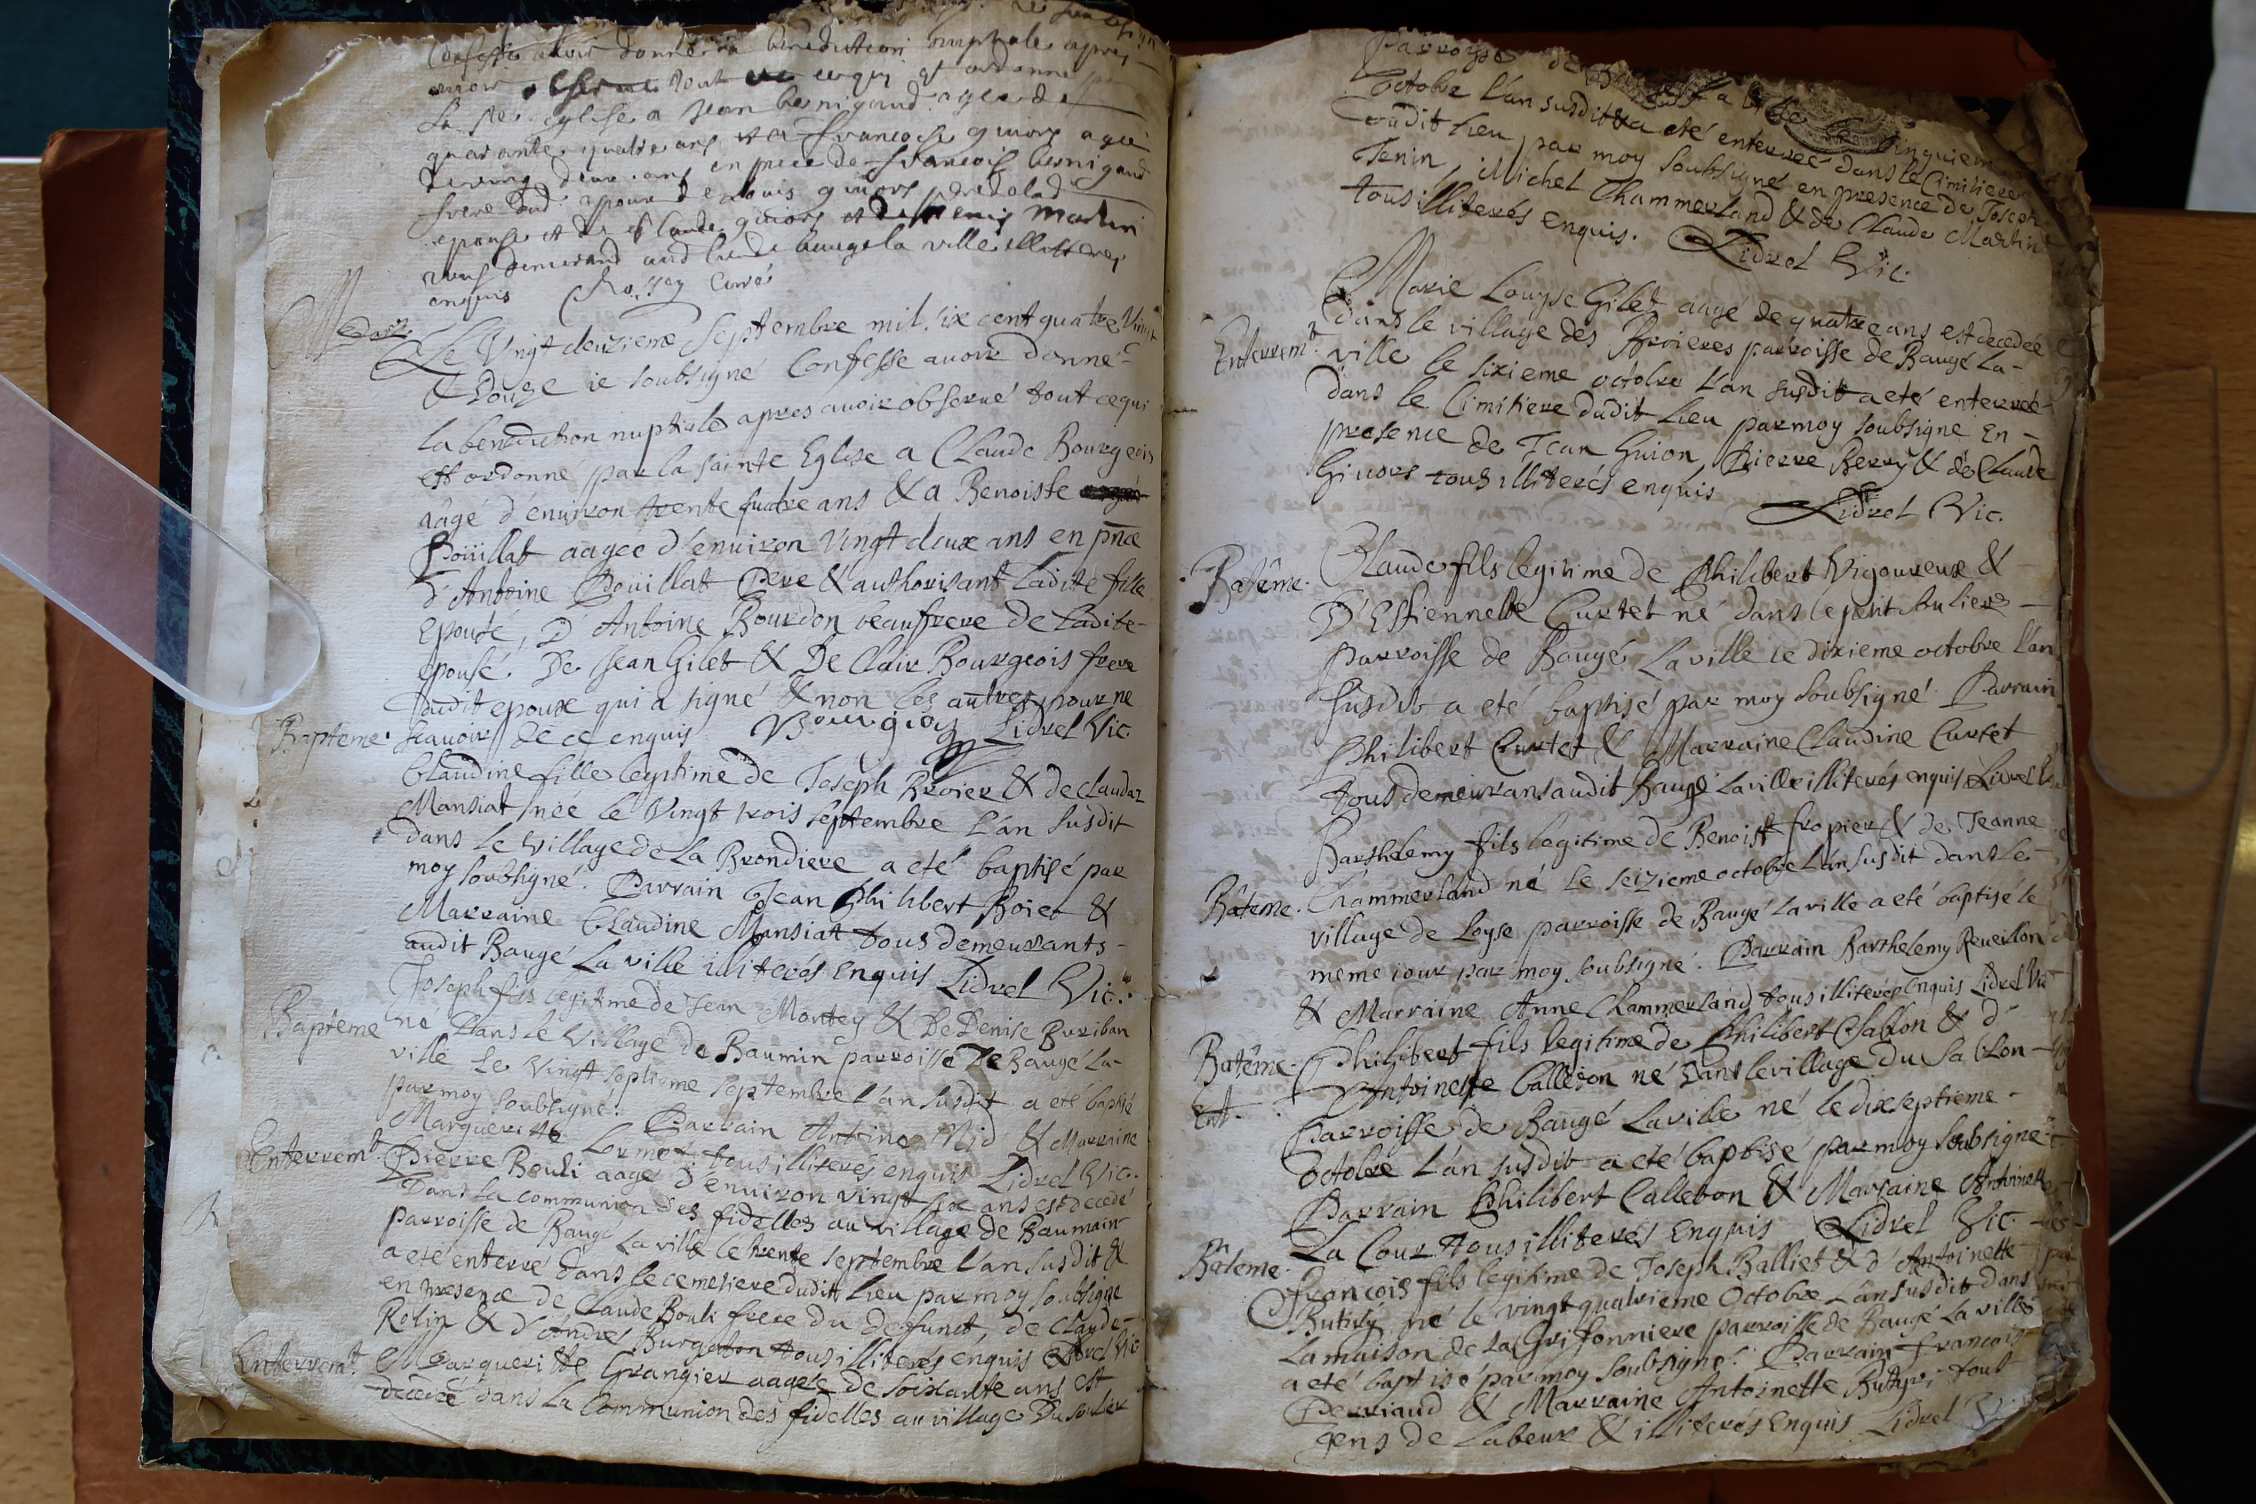 Confesse avoir donné la benediction nuptiale apres
avoir observé tout ce qui est ordonné par
la Ste eglise a Jean bernigaud agee de
quarante quatre ans et a francoise guiors agee
de vingt deux ans en prece de francois bernigaud
frere dud. epoux de louis guiors pere de lad.
epouse et de claude guiors et denis martin
tous demeurand aud lieu de bauge la ville illitterez
enquis Curé
Le Vingt deuzieme Septembre mil six cent quatre Vingt
& Douze ie soubsigné Confesse auoir donné
la benediction nuptiale apres auoir obserué tout cequi
est ordonné par la sainte Eglise a Claude Bourgeois
aâgé d'enuiron trente quatre ans & a Benoiste
Poüillat aagee d'enuiron Vingt deux ans en pnce
d'Antoine Poüillat Pere & authorisant ladite fille
Epouse, D'Antoine Bourdon beaufrere de Ladite
epouse. De Jean Gilet & De Clair Bourgeois frere
dudit epoux qui a signé & non les autres pour ne
Bapteme. scauoir de ce enquis. Bourgeois Lidrel Vic.
Claudine fille legitime de Joseph Broier & de Claudaz
Mansiat née le Vingt trois septembre l'an susdit
dans le Village de La Brondiere a eté baptisé par
moy soubsigné. Parrain Jean Philibert Boier &
Marraine Claudine Mansiat tous demeurants
audit Baugé La ville illiterés Enquis Lidrel Vic.
Bapteme Joseph fils legitime de Jean Montey & De Denise Buriban
né Dans le Village de Baumin parroisse De Baugé La
ville Le vingt septieme septembre l'an susdit a eté baptisé
par moy soubsigné. Parrain Antoine Nid & Marraine
Marguerite tous illiterés enquis Lidrel Vic.
Enterremt. Pierre Bouli aagé d'enuiron vingt six ans est decedé
Dans la communion des fidelles au village de Baumain
parroisse de Baugé La ville le trente septembre l'an susdit &
a eté enterré dans le cemetiere dudit lieu par moy soubsigne
en presence de Claude Bouli frere du defunct, de Claude
Rolin & d'André Burgaton tous illiterés enquis Lidrel Vic
Enterremt. Margueritte Grangier aagée de soixante ans est
decedée dans la Communion des fidelles au village Du soulier
Parroisse de Baugé La ville le cinquieme
octobre l'an susdit & a eté enterrée dans le Cimitiere
dudit lieu par moy soubsigné en presence de Joseph
Tenin, Michel Chammerland & de Claude Martin
tous illiterés enquis. Lidrel Vic.
Enterremt. Marie Louyse Gilet aagé de quatre ans est decedée
dans le village des Broieres parroisse de Baugé La
ville le sixieme octobre l'an susdit a eté enterrée
dans le Cimitiere dudit lieu par moy soubsigne En
presence de Jean Guion, Pierre Berry & de Claude
Giuors tous illiterés enquis Lidrel Vic.
Batême. Claude fils legitime de Philibert Vigoureux &
D'Estiennette Curtet né dans le petit soulier
parroisse de Baugé La ville le dixieme octobre l'an
susdit a eté baptisé par moy soubsigné. Parrain
Philibert Curtet & Marraine Claudine Curtet
tous demeurans audit Baugé La ville illiterés enquis Lidrel Vic
Barthelemy fils legitime de Benoist fropier & de Jeanne
Bâteme. Chammerland né le seizieme octobre l'an susdit dans le
village de Loyse parroisse de Baugé La ville a eté baptisé le
meme iour par moy soubsigné. Parrain Barthelemy Reueillon
& Marraine Anne Chammerland tous illiterés Enquis Lidrel Vic
Batême. Philibert fils legitime de Philibert Chablon & d'
Ent. Antoinette Calleton né Dans le village du Sablon
Parroisse de Baugé La ville né le dixseptieme
octobre l'an susdit a eté baptisé par moy soubsigné
Parrain Philibert Calleton & Marraine Antoinette
La Cour tous illiterés Enquis Lidrel Vic.
Bâteme. François fils legitime de Joseph Balliet & d'Antoinette
Butiry né le vingt quatrieme Octobre L'an susdit dans
La maison de La Grifonniere parroisse de Baugé La ville
a eté baptisé par moy soubsigné. Parrain François
Perriaud & Marraine Antoinette Butyri tout
gens de labeur & illiterés Enquis Lidrel Vic